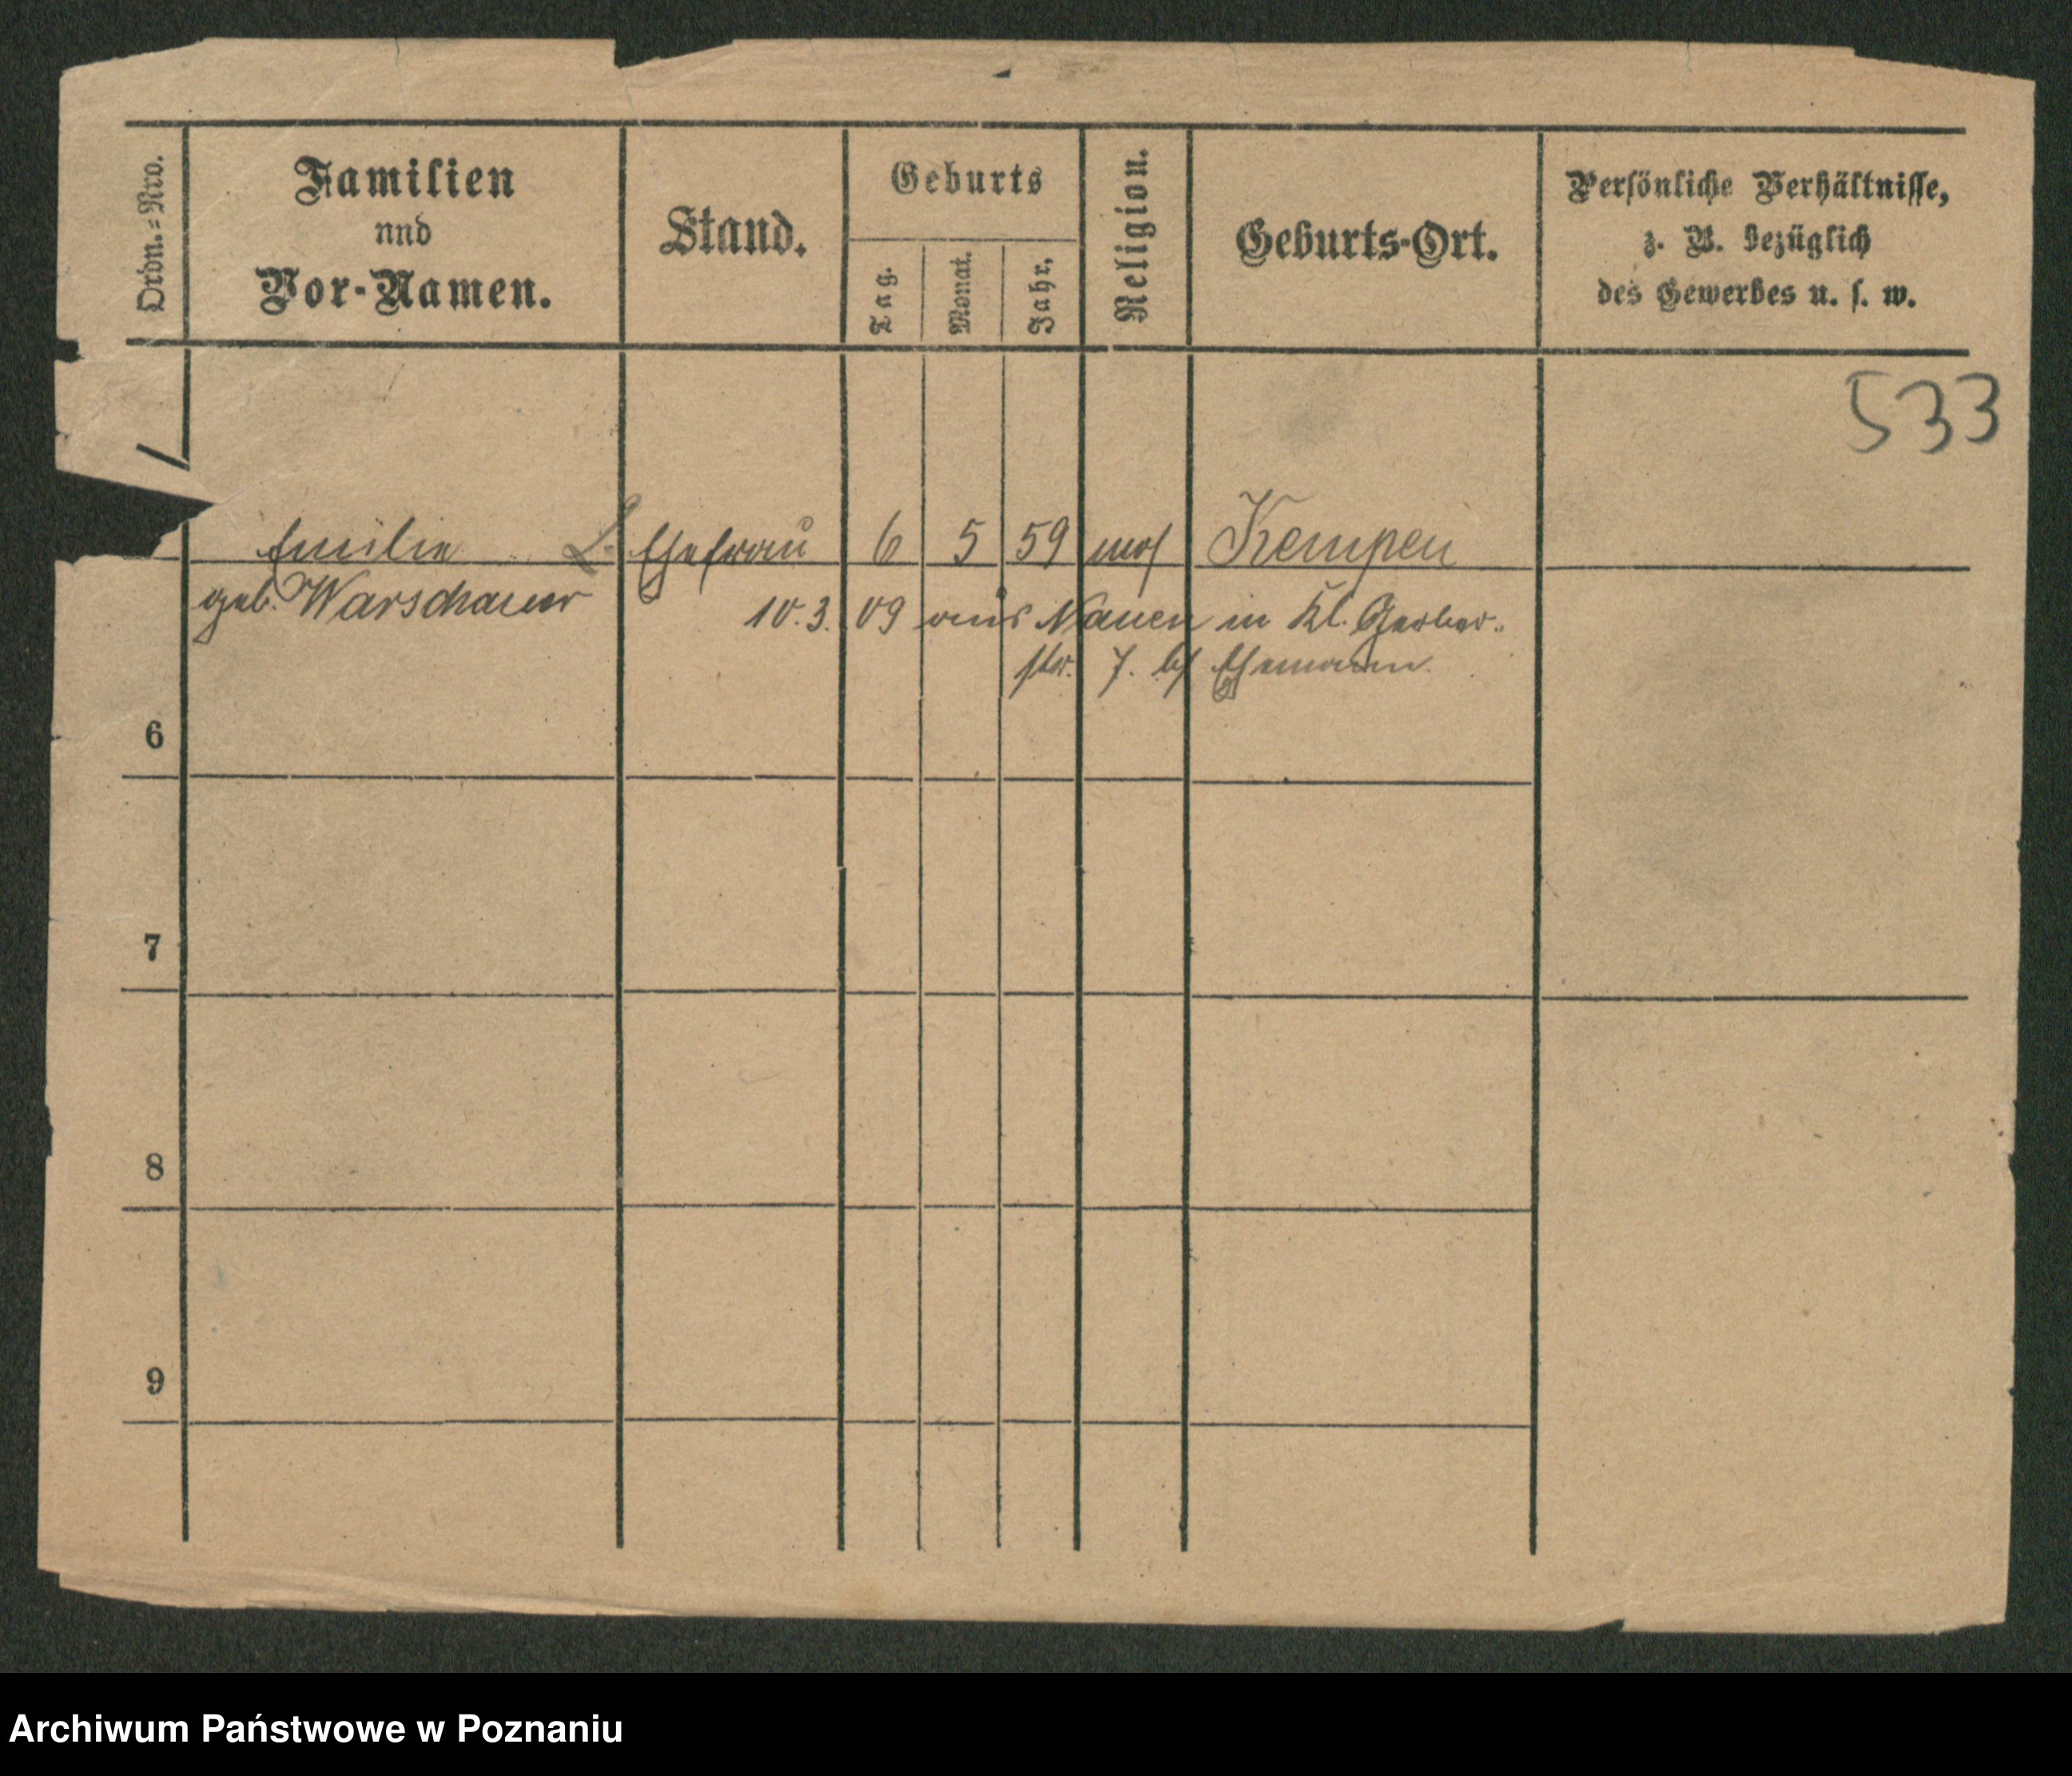 Ordn.=Nro.
Familien
und
Vor-Namen.
Stand.
Geburts
Tag.
Monat.
Jahr.
Religion.
Geburts-Ort.
Persönliche Verhältnisse,
z. B. bezüglich
des Gewerbes u. s. w.
533
Emilie Ehefrau 6 5 59 mos Kempen
geb. Warschauer 10.3.09 aus Nauen in Kl. Gerber-
str. 7. bs Ehemann.
6
7
8
9
Archiwum Państwowe w Poznaniu